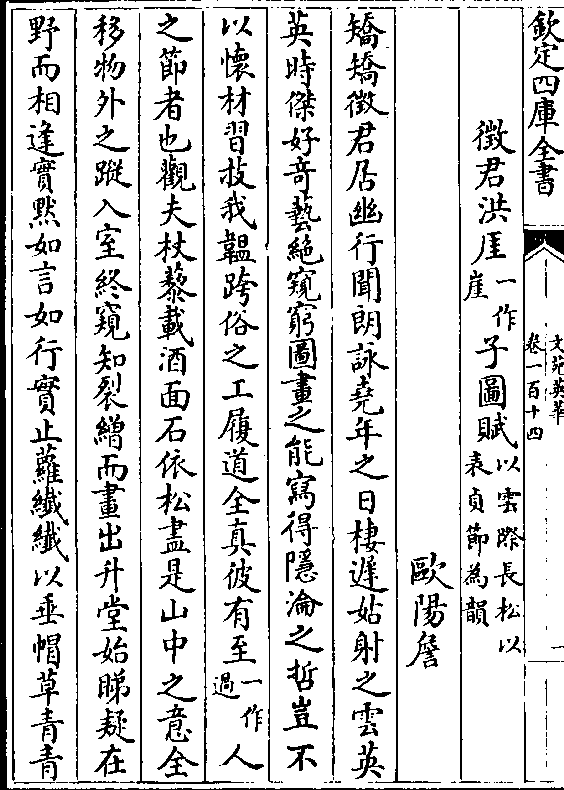 欽定四庫全書
文苑英華
卷一百十四
一
徵君洪厓一作崖子圖賦以雲際長松以表貞節為韻
歐陽詹
矯矯徵君居幽行聞朗詠堯年之日棲遲姑射之雲英
英時傑好奇藝絶窺窮圖畫之能寫得隱淪之哲豈不
以懷材習技我韞跨俗之工履道全真彼有至一作過人
之節者也觀夫杖藜載酒面石依松盡是山中之意全
移物外之蹤入室終窺知裂繒而畫出升堂始睇疑在
野而相逢實黙如言如行實止蘿纖纖以垂帽草青青